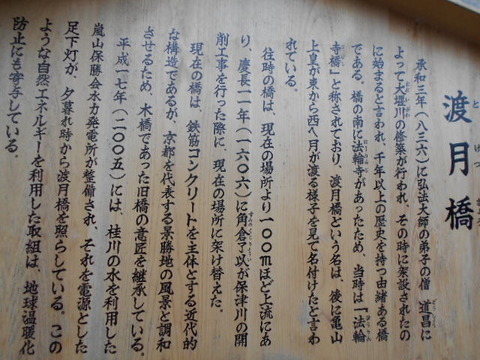 渡月橋
と げつ きょう
承和三年（八三六）に弘法大師の弟子の僧 道昌に
よって大堰川の修築が行われ、その時に架設されたの
に始まると言われ、千年以上の歴史を持つ由緒ある橋
である。橋の南に法輪寺があったため、当時は「法輪
寺橋」と称されており、渡月橋という名は、後に亀山
上皇が東から西へ月が渡る様子を見て名付けたと言わ
れている。
往時の橋は、現在の場所より１００ｍほど上流にあ
り、慶長一一年（一六〇六）に角倉了以が保津川の開
削工事を行った際に、現在の場所に架け替えた。
現在の橋は、鉄筋コンクリートを主体とする近代的
な構造であるが、京都を代表する景勝地の風景と調和
させるため、木橋であった旧橋の意匠を継承している。
平成一七年（二〇〇五）には、桂川の水を利用した
嵐山保勝会水力発電所が整備され、それを電源とした
足下灯が、夕暮れ時から渡月橋を照らしている。この
ような自然エネルギーを利用した取組は、地球温暖化
防止にも寄与している。